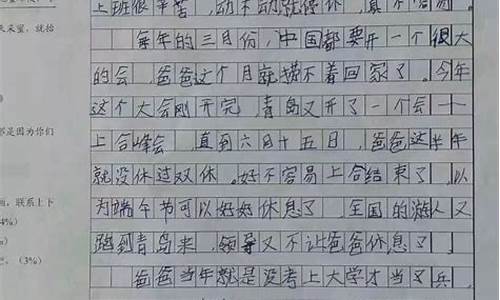 上班很辛苦，动不动就停休，真不容易。
每年的三月份，中国都要开一个很大
的会，爸爸这个月就摸不着回家了。今年
这个大会刚开完，青岛又开了一个会——
上合峰会，直到六月十五日，爸爸这半年
就没休过双休。好不容易上合结束了，以
为端午节可以好好休息了，全国的游人又
跑到青岛来，领导又不让爸爸休息了。
爸爸当年就是没考上大学才当了兵，
天采望，就抬
都是因为你们
画，联系上下
4%）
%）
（3%）